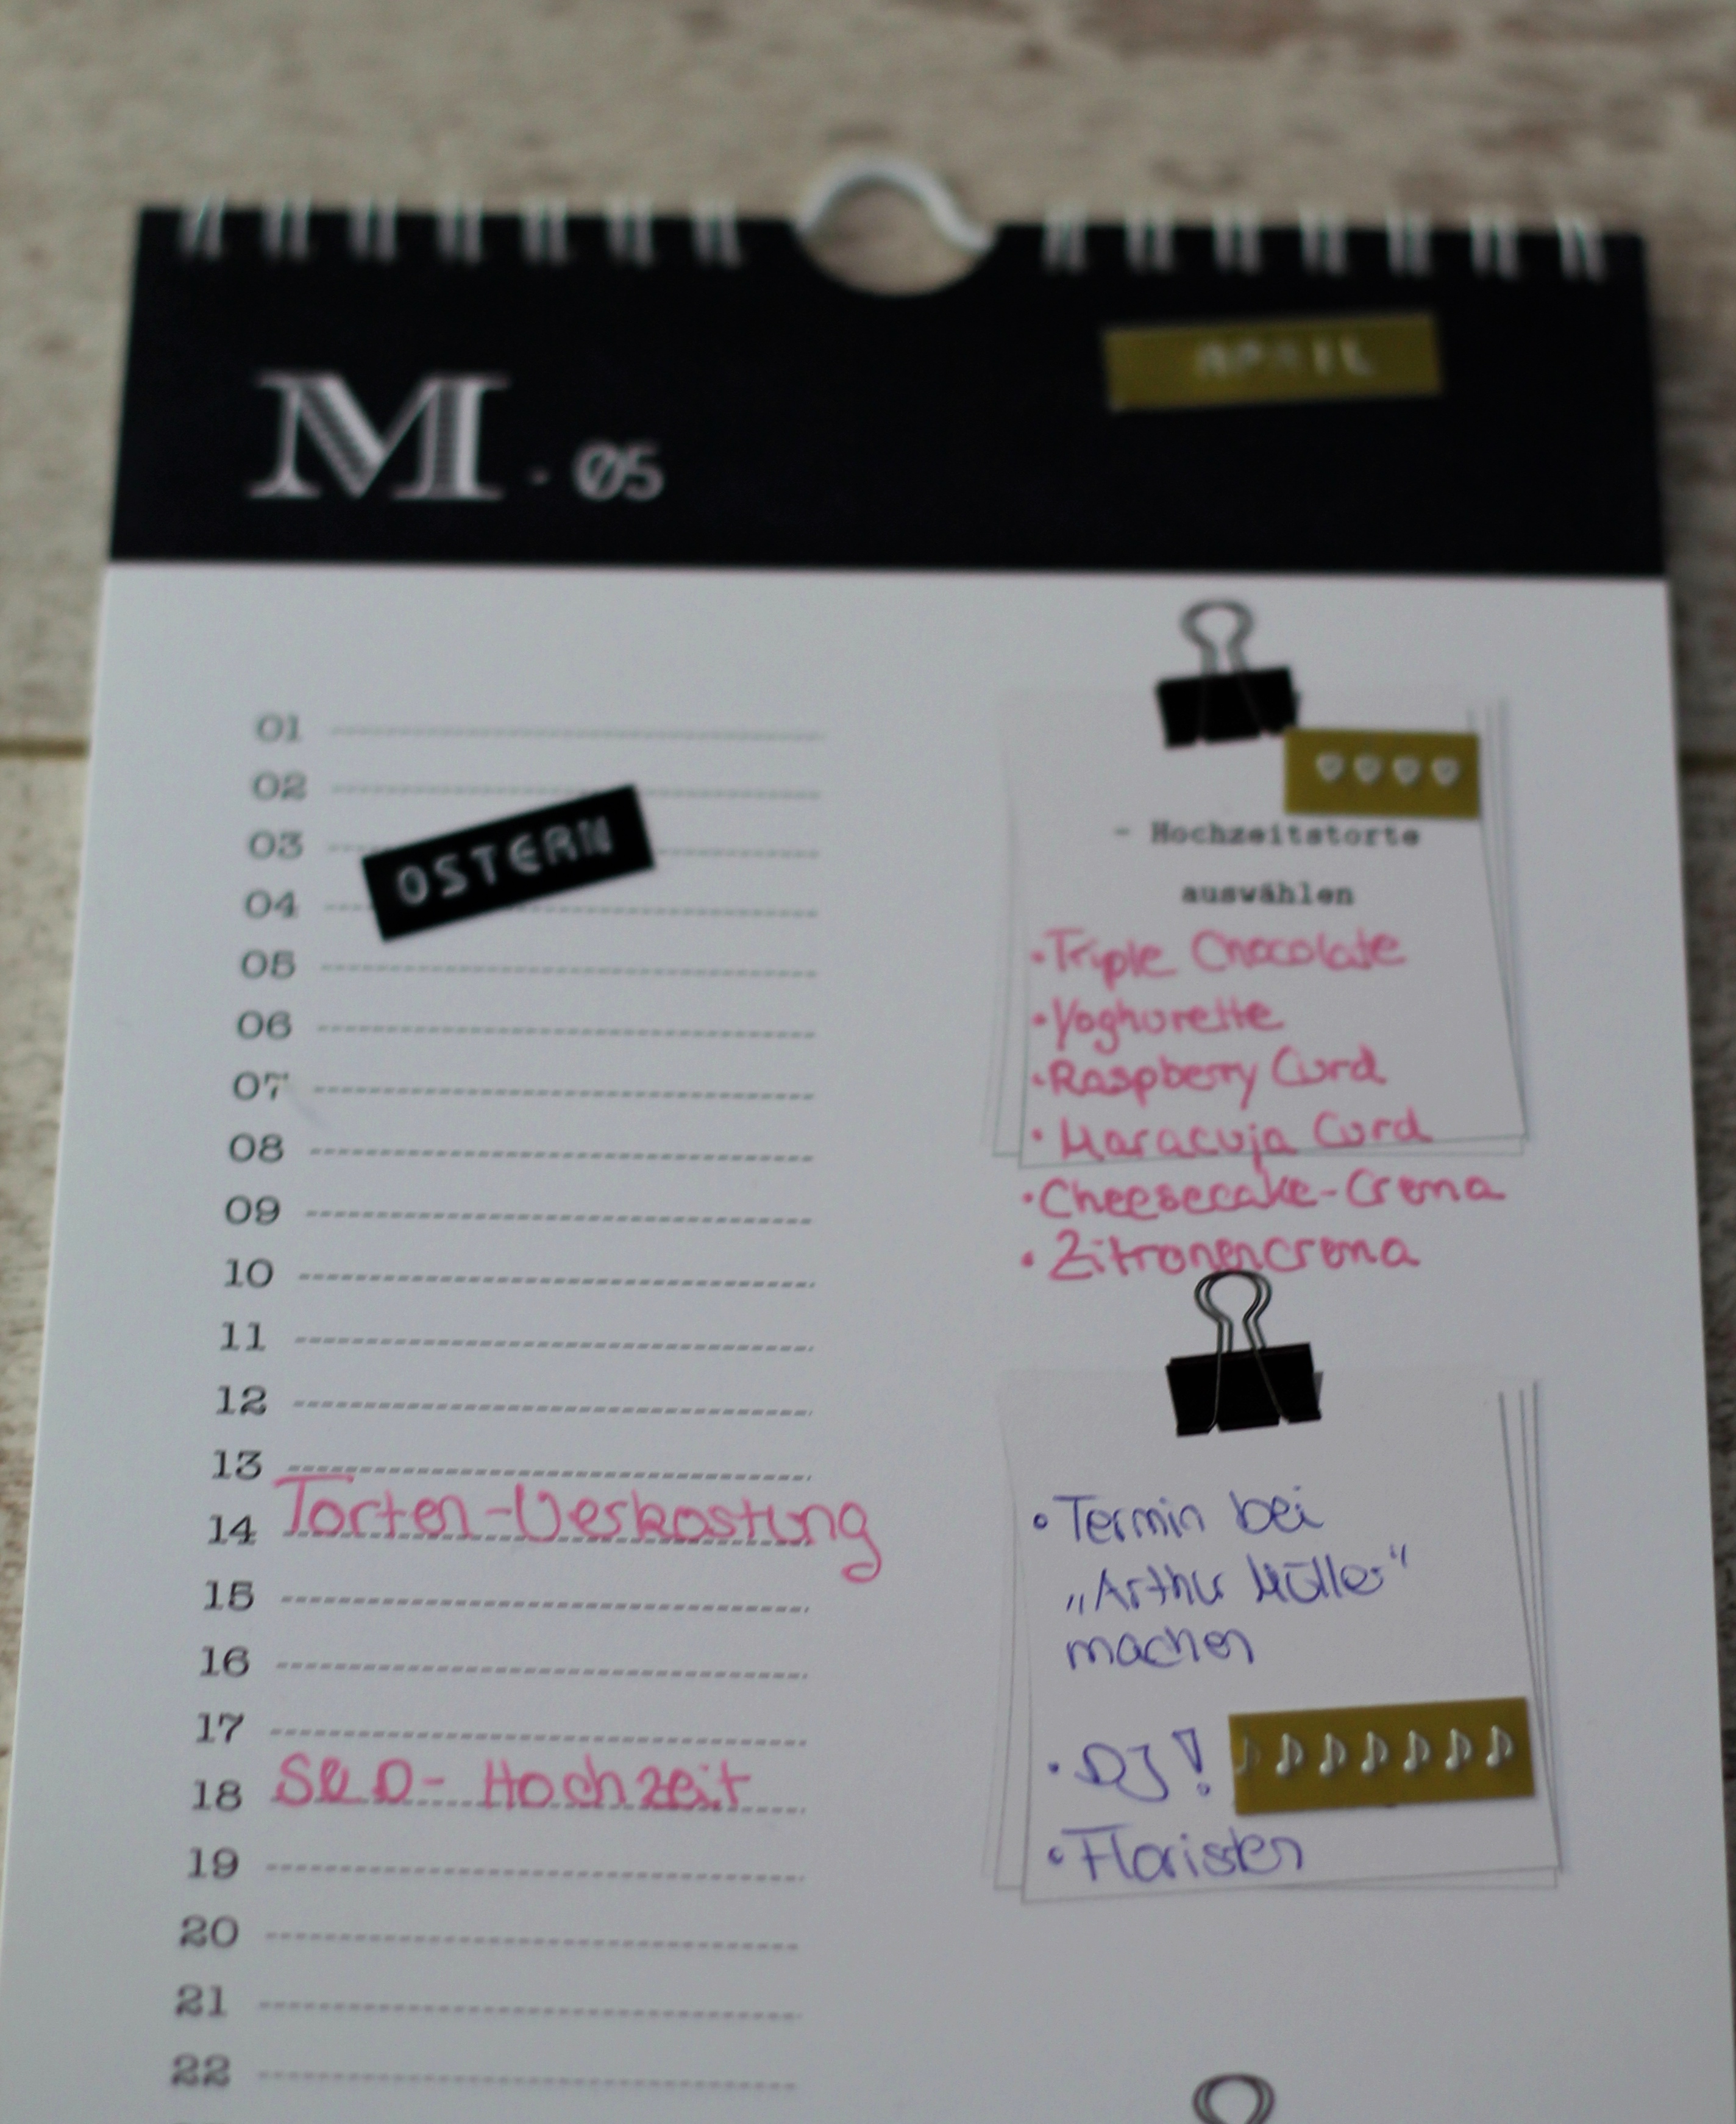 APRIL
M - 05
01
02
03
OSTERN
04
05
06
07
08
09
10
11
12
13
14 Torten-Verkostung
15
16
17
18 S&D- Hochzeit
19
20
21
22
- Hochzeitstorte
auswählen
• Triple Chocolate
• Yoghurette
• Raspberry Curd
• Maracuja Curd
• Cheesecake-Crema
• Zitronencrema
• Termin bei
„Arthur Müller“
machen
• DJ!
• Floristen